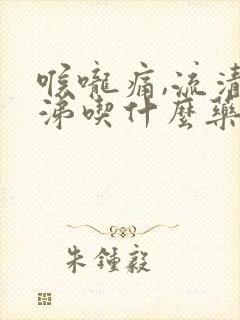 喉嚨痛,流清
涕喫什麼藥
朱鍾毅